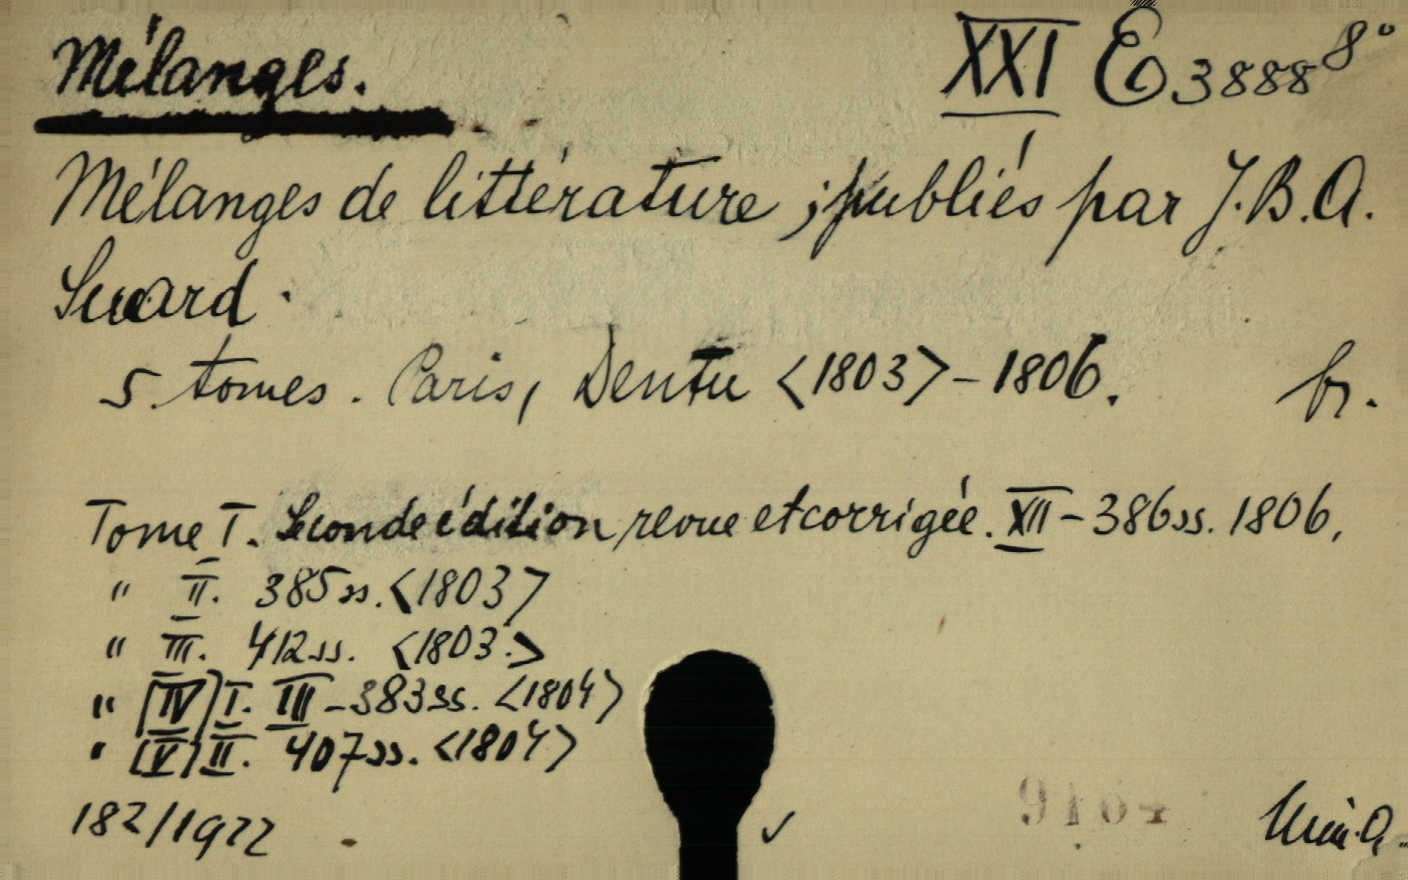 Mélanges. XXI E 3888 8°
Mélanges de littérature ; publiés par J. B. A.
Suard.
5. tomes. Paris, Dentu <1803> - 1806. br.
Tome I. Seconde édition revue et corrigée. XII - 386 ss. 1806,
" II. 385 ss. <1803>
" III. 412 ss. <1803.>
" [IV] I. III - 383 ss. <1804>
" [V] II. 407 ss. <1804>
182/1922